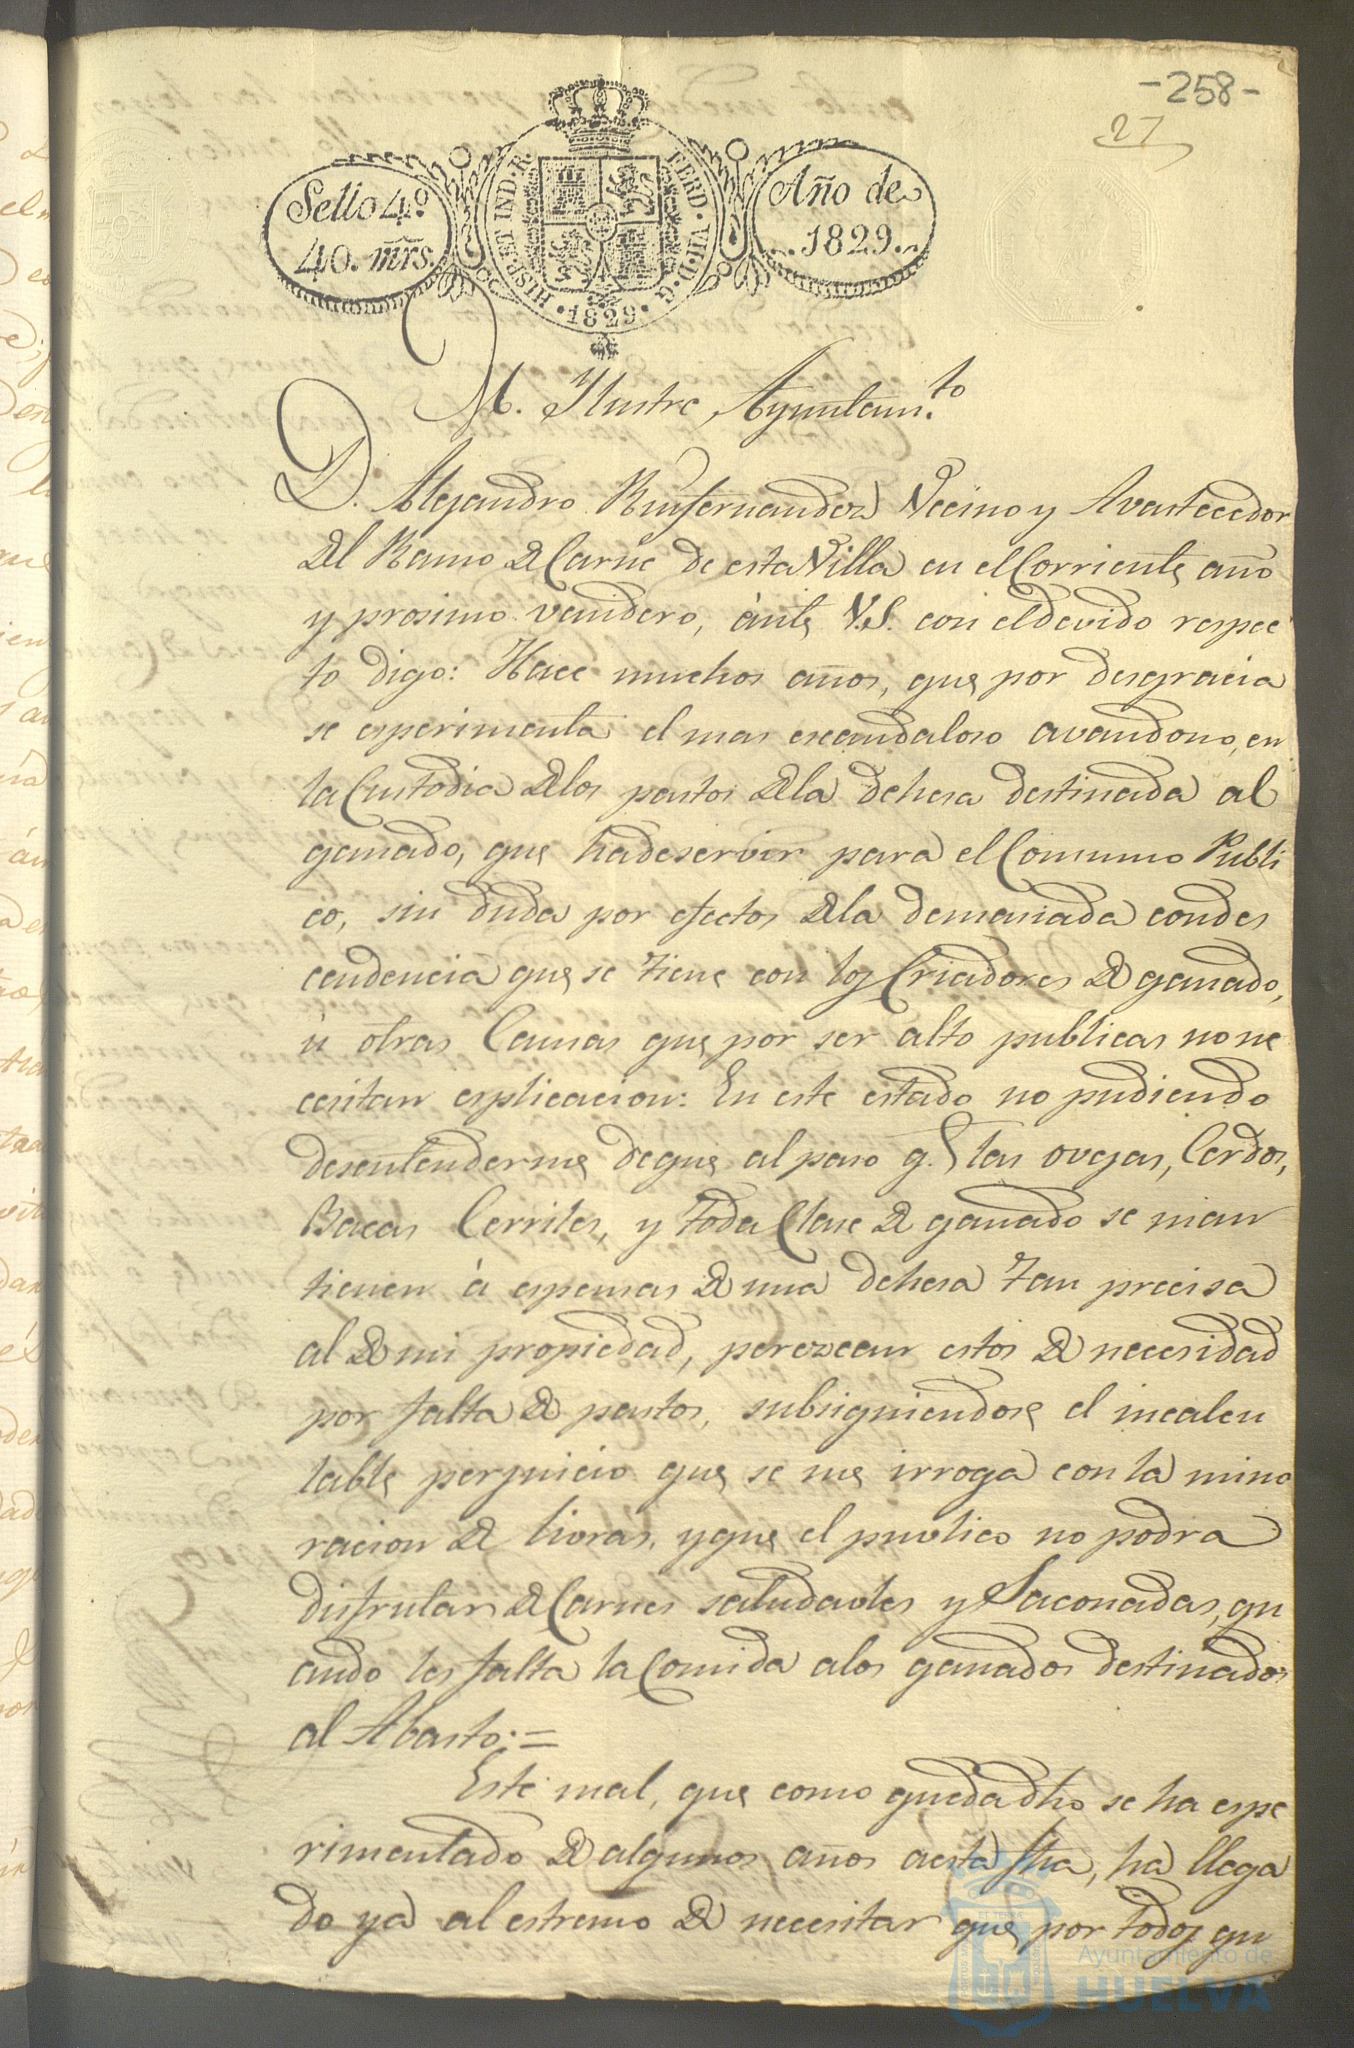 -258-
27
Sello 4º
40. mrs.
HISP. ET IND. R. FERD. VII. D. G.
1829
Año de
1829.
M. Ilustre Ayuntam.to
D. Alejandro Ruifernandez Vecino y Avastecedor
del Ramo de Carne de esta Villa en el Corriente año
y prosimo venidero, ànte V.S. con el devido respec
to digo: Hace muchos años, que por desgracia
se esperimenta el mas escandaloso avandono, en
la Custodia de los pastos de la dehesa destinada al
ganado, que ha de servir para el Comumo Publi
co, sin duda por efectos de la demasiada condes
cendencia que se tiene con los Criadores de ganado,
ù otras Causas que por ser alto publicas no ne
cesitan esplicacion: En este estado no pudiendo
desentenderme de que al paso q.e las ovejas, Cerdos,
Bacas Cerriles, y toda Clase de ganado se man
tienen à espensas de una dehesa tan precisa
al de mi propiedad, perezcan estos de necesidad
por falta de pastos, subsiguiendose el incalcu
lable perjuicio que se me irroga con la mino
racion de livras, y que el puvlico no podra
disfrutar de Carnes saludavles y Saconadas, qu
ando les falta la Comida a los ganados destinados
al Abasto: =
Este mal, que como queda dho se ha espe
rimentado de algunos años a esta fha, ha llega
do ya al estremo de necesitar que por todos qu
Ayuntamiento de
HUELVA